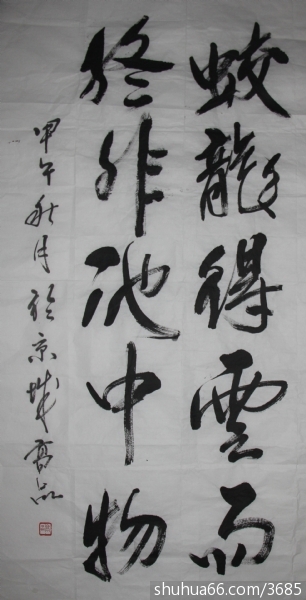 蛟龍得雲雨
終非池中物
甲午秋月於京城
shuhua66.com/3685